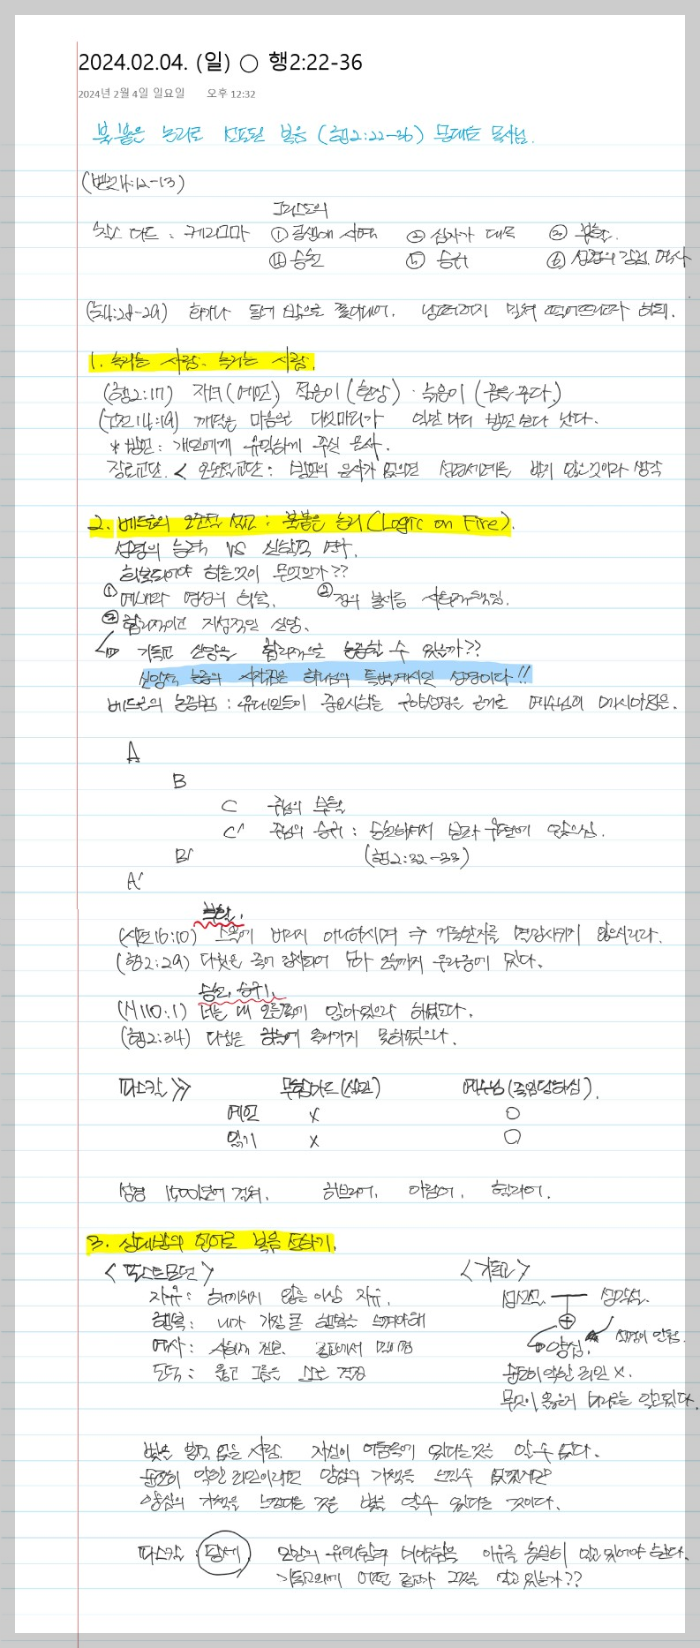 2024.02.04. (일) ○ 행2:22-36
2024년 2월 4일 일요일 오후 12:32
불붙은 논리로 선포된 복음 (행2:22-36) 목사님.
(벧전4:12-13)
그리스도의
찰스 다드 : 케리그마 ① ② 십자가 대속 ③ 부활.
④ 승천 ⑤ 승귀 ⑥ 역사
(눅4:28-29) 화가나 동네 밖으로 쫓아내어, 낭떠러지까지 밀쳐 떨어뜨리고자 하되.
1. 사람, 사람.
(행2:17) 자녀(예언) 젊은이(환상) · 늙은이(꿈을 꾸다)
(고전14:19) 깨달은 마음으로 다섯마디가 일만 마디 방언 보다 낫다.
* 방언 : 개인에게 유익하게 주신 은사.
장로교단 < 오순절교단 : 방언의 은사가 없으면 성령세례를 받지 않은것이라 생각
2. 베드로의 오순절 설교 : 불붙은 논리 (Logic on Fire).
성령의 능력 VS 실천적
회복되어야 하는것이 무엇인가??
① 예배와 영성의 회복. ②
③ 합리적이고 지성적인 신앙.
↳ 기독교 신앙을 합리적으로 논증할 수 있는가??
신앙적 논증의 시작점은 하나님의 특별계시인 성경이다!!
베드로의 논증법 : 유대인들이 중요시하는 구약성경을 근거로 예수님이 메시아임을.
A
B
C 주님의 부활
C' 주님의 승귀 : 승천하셔서 우편에 앉으심.
B' (행2:32-33)
A'
부활.
(시편16:10) 스올에 버리지 아니하시며 ⇒ 거룩한자를 멸망시키지 않으시리라.
(행2:29) 다윗은 죽어 장사되어 묘가 오늘까지 우리중에 있다.
승천, 승귀.
(시110:1) 너는 내 오른쪽에 앉아있으라 하셨도다.
(행2:34) 다윗은 하늘에 올라가지 못하였으나.
파스칼 ≫ 무함마드(살인) 예수님(죽임당하심).
예언 x ○
읽기 x ○
성경 1500년에 걸쳐. 히브리어, 아람어, 헬라어.
3. 상대방의 언어로 복음 전하기.
<포스트모던> <기독교>
자유 : 해끼치지 않는 이상 자유.
행복 : 내가 가장 큰 행복을 느껴야해
역사 :
도덕 : 옳고 그름은 스스로 결정
양심.
순전히 악한 죄인 x.
무엇이 옳은지 알고있다.
빛을 받지 않은 사람. 자신이 어둠속에 있다는것을 알수 없다.
순전히 악한 죄인이라면 양심의 가책을 느낄수 없겠지만
양심의 가책을 느낀다는 것은 빛을 알수 있다는 것이다.
파스칼 : 팡세 인간의 위대함과 비참함을 이유를 충분히 알고 있어야 한다.
기독교외에 어떤 종교가 그것을 알고 있는가??